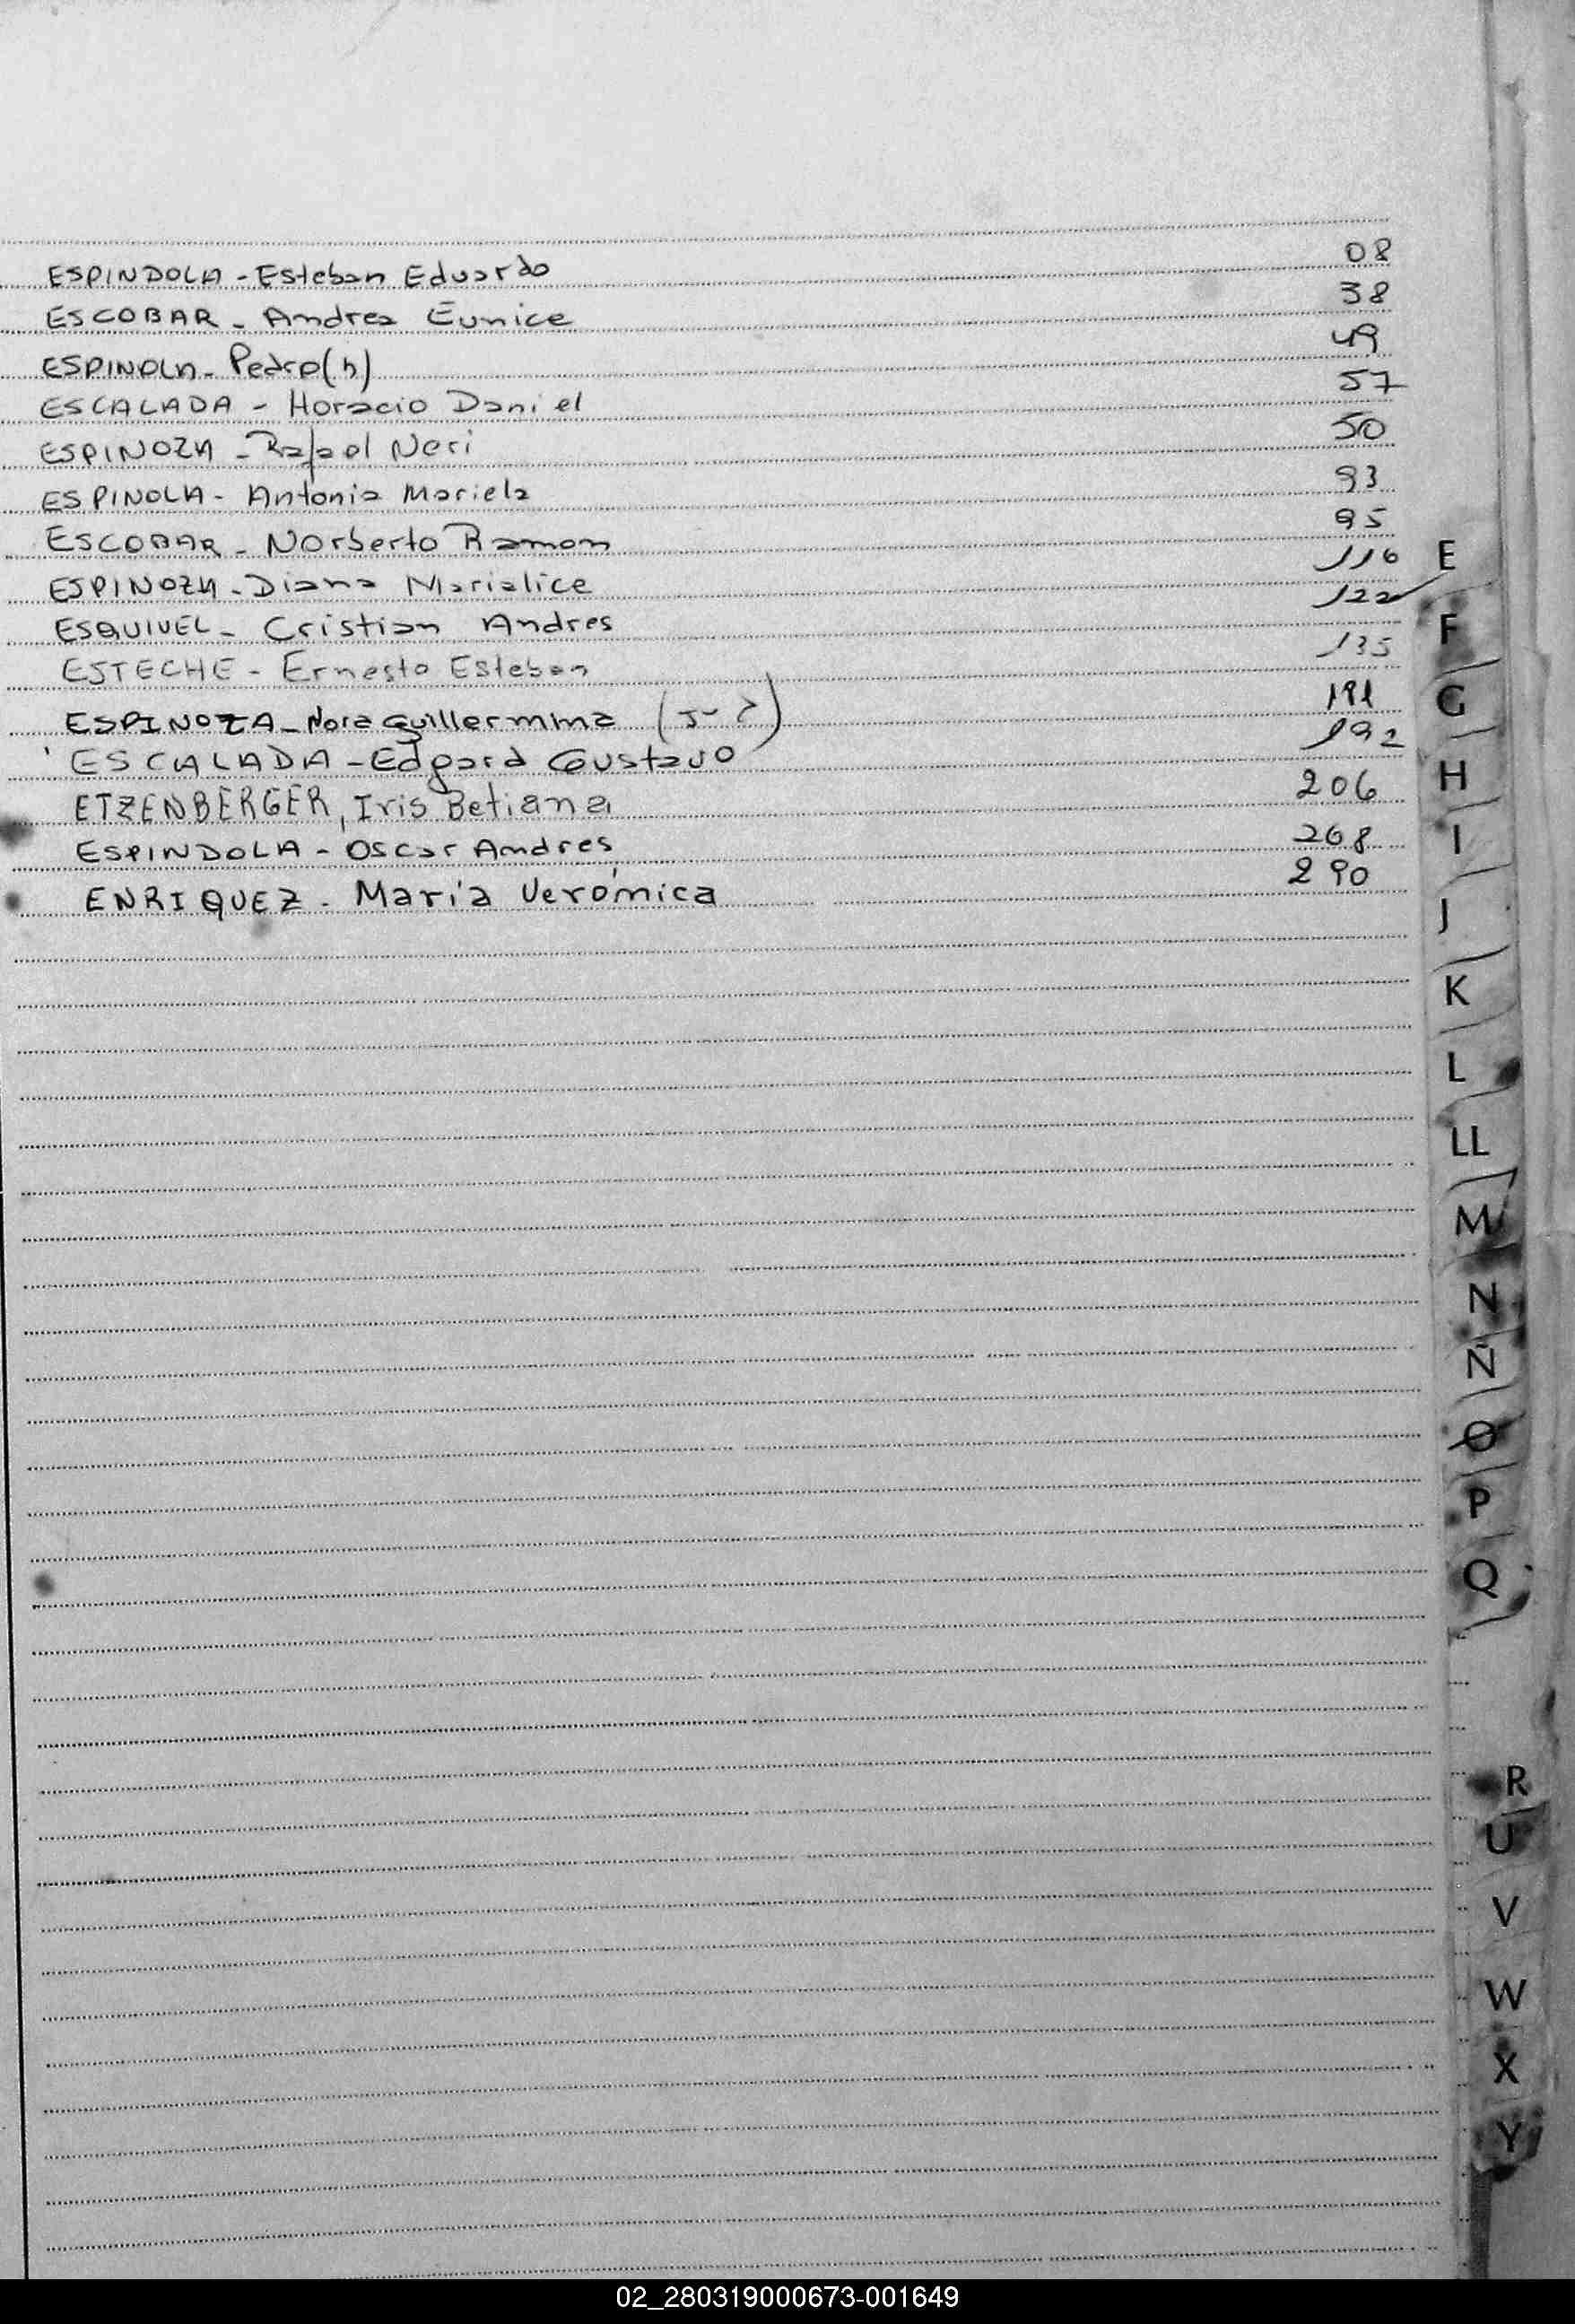 ESPINDOLA - Esteban Eduardo 08
ESCOBAR - Andrea Eunice 38
ESPINOLA - Pedro (h) 49
ESCALADA - Horacio Daniel 57
ESPINOZA - Rafael Neri 50
ESPINOLA - Antonia Mariela 93
ESCOBAR - Norberto Ramon 95
ESPINOZA - Diana Marialice 116
ESQUIVEL - Cristian Andres 122
ESTECHE - Ernesto Esteban 135
ESPINOZA - Nora Guillermina 191
ESCALADA - Edgard Gustavo 192
ETZENBERGER, Iris Betiana 206
ESPINDOLA - Oscar Andres 268
ENRIQUEZ - María Verónica 290
E
F
G
H
I
J
K
L
LL
M
N
Ñ
O
P
Q
R
U
V
W
X
Y
02_280319000673-001649